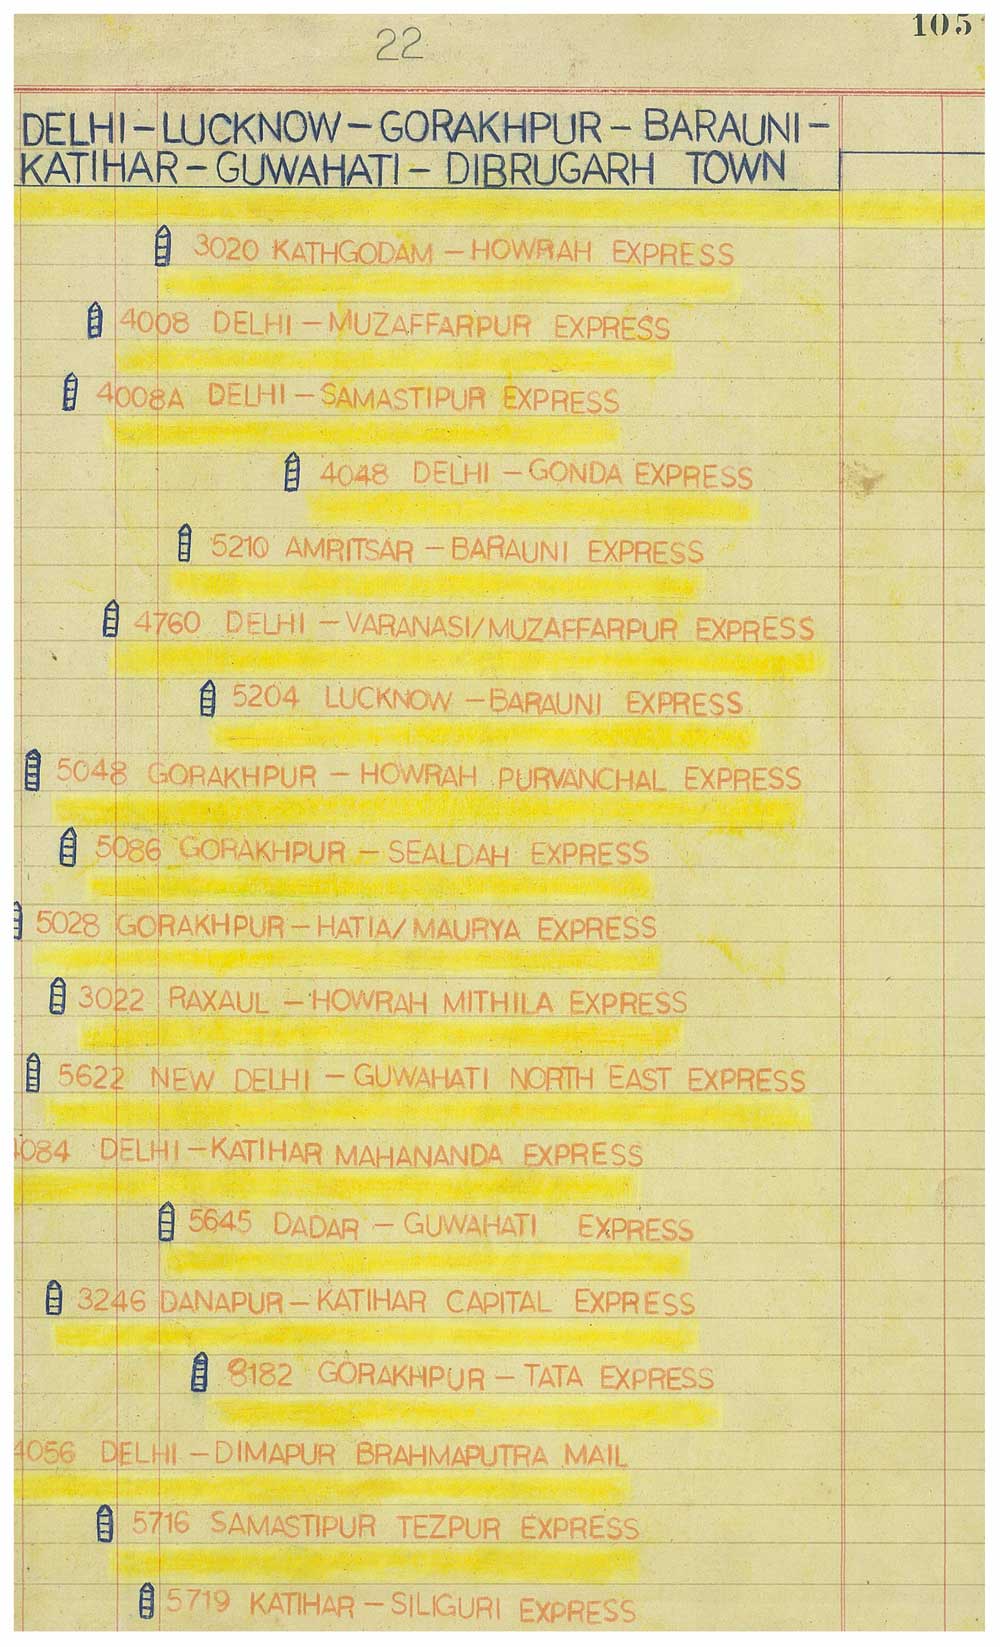 105
22
DELHI – LUCKNOW – GORAKHPUR – BARAUNI –
KATIHAR – GUWAHATI – DIBRUGARH TOWN
3020 KATHGODAM – HOWRAH EXPRESS
4008 DELHI – MUZAFFARPUR EXPRESS
4008A DELHI – SAMASTIPUR EXPRESS
4048 DELHI – GONDA EXPRESS
5210 AMRITSAR – BARAUNI EXPRESS
4760 DELHI – VARANASI/MUZAFFARPUR EXPRESS
5204 LUCKNOW – BARAUNI EXPRESS
5048 GORAKHPUR – HOWRAH PURVANCHAL EXPRESS
5086 GORAKHPUR – SEALDAH EXPRESS
5028 GORAKHPUR – HATIA/MAURYA EXPRESS
3022 RAXAUL – HOWRAH MITHILA EXPRESS
5622 NEW DELHI – GUWAHATI NORTH EAST EXPRESS
4084 DELHI – KATIHAR MAHANANDA EXPRESS
5645 DADAR – GUWAHATI EXPRESS
3246 DANAPUR – KATIHAR CAPITAL EXPRESS
8182 GORAKHPUR – TATA EXPRESS
4056 DELHI – DIMAPUR BRAHMAPUTRA MAIL
5716 SAMASTIPUR TEZPUR EXPRESS
5719 KATIHAR – SILIGURI EXPRESS